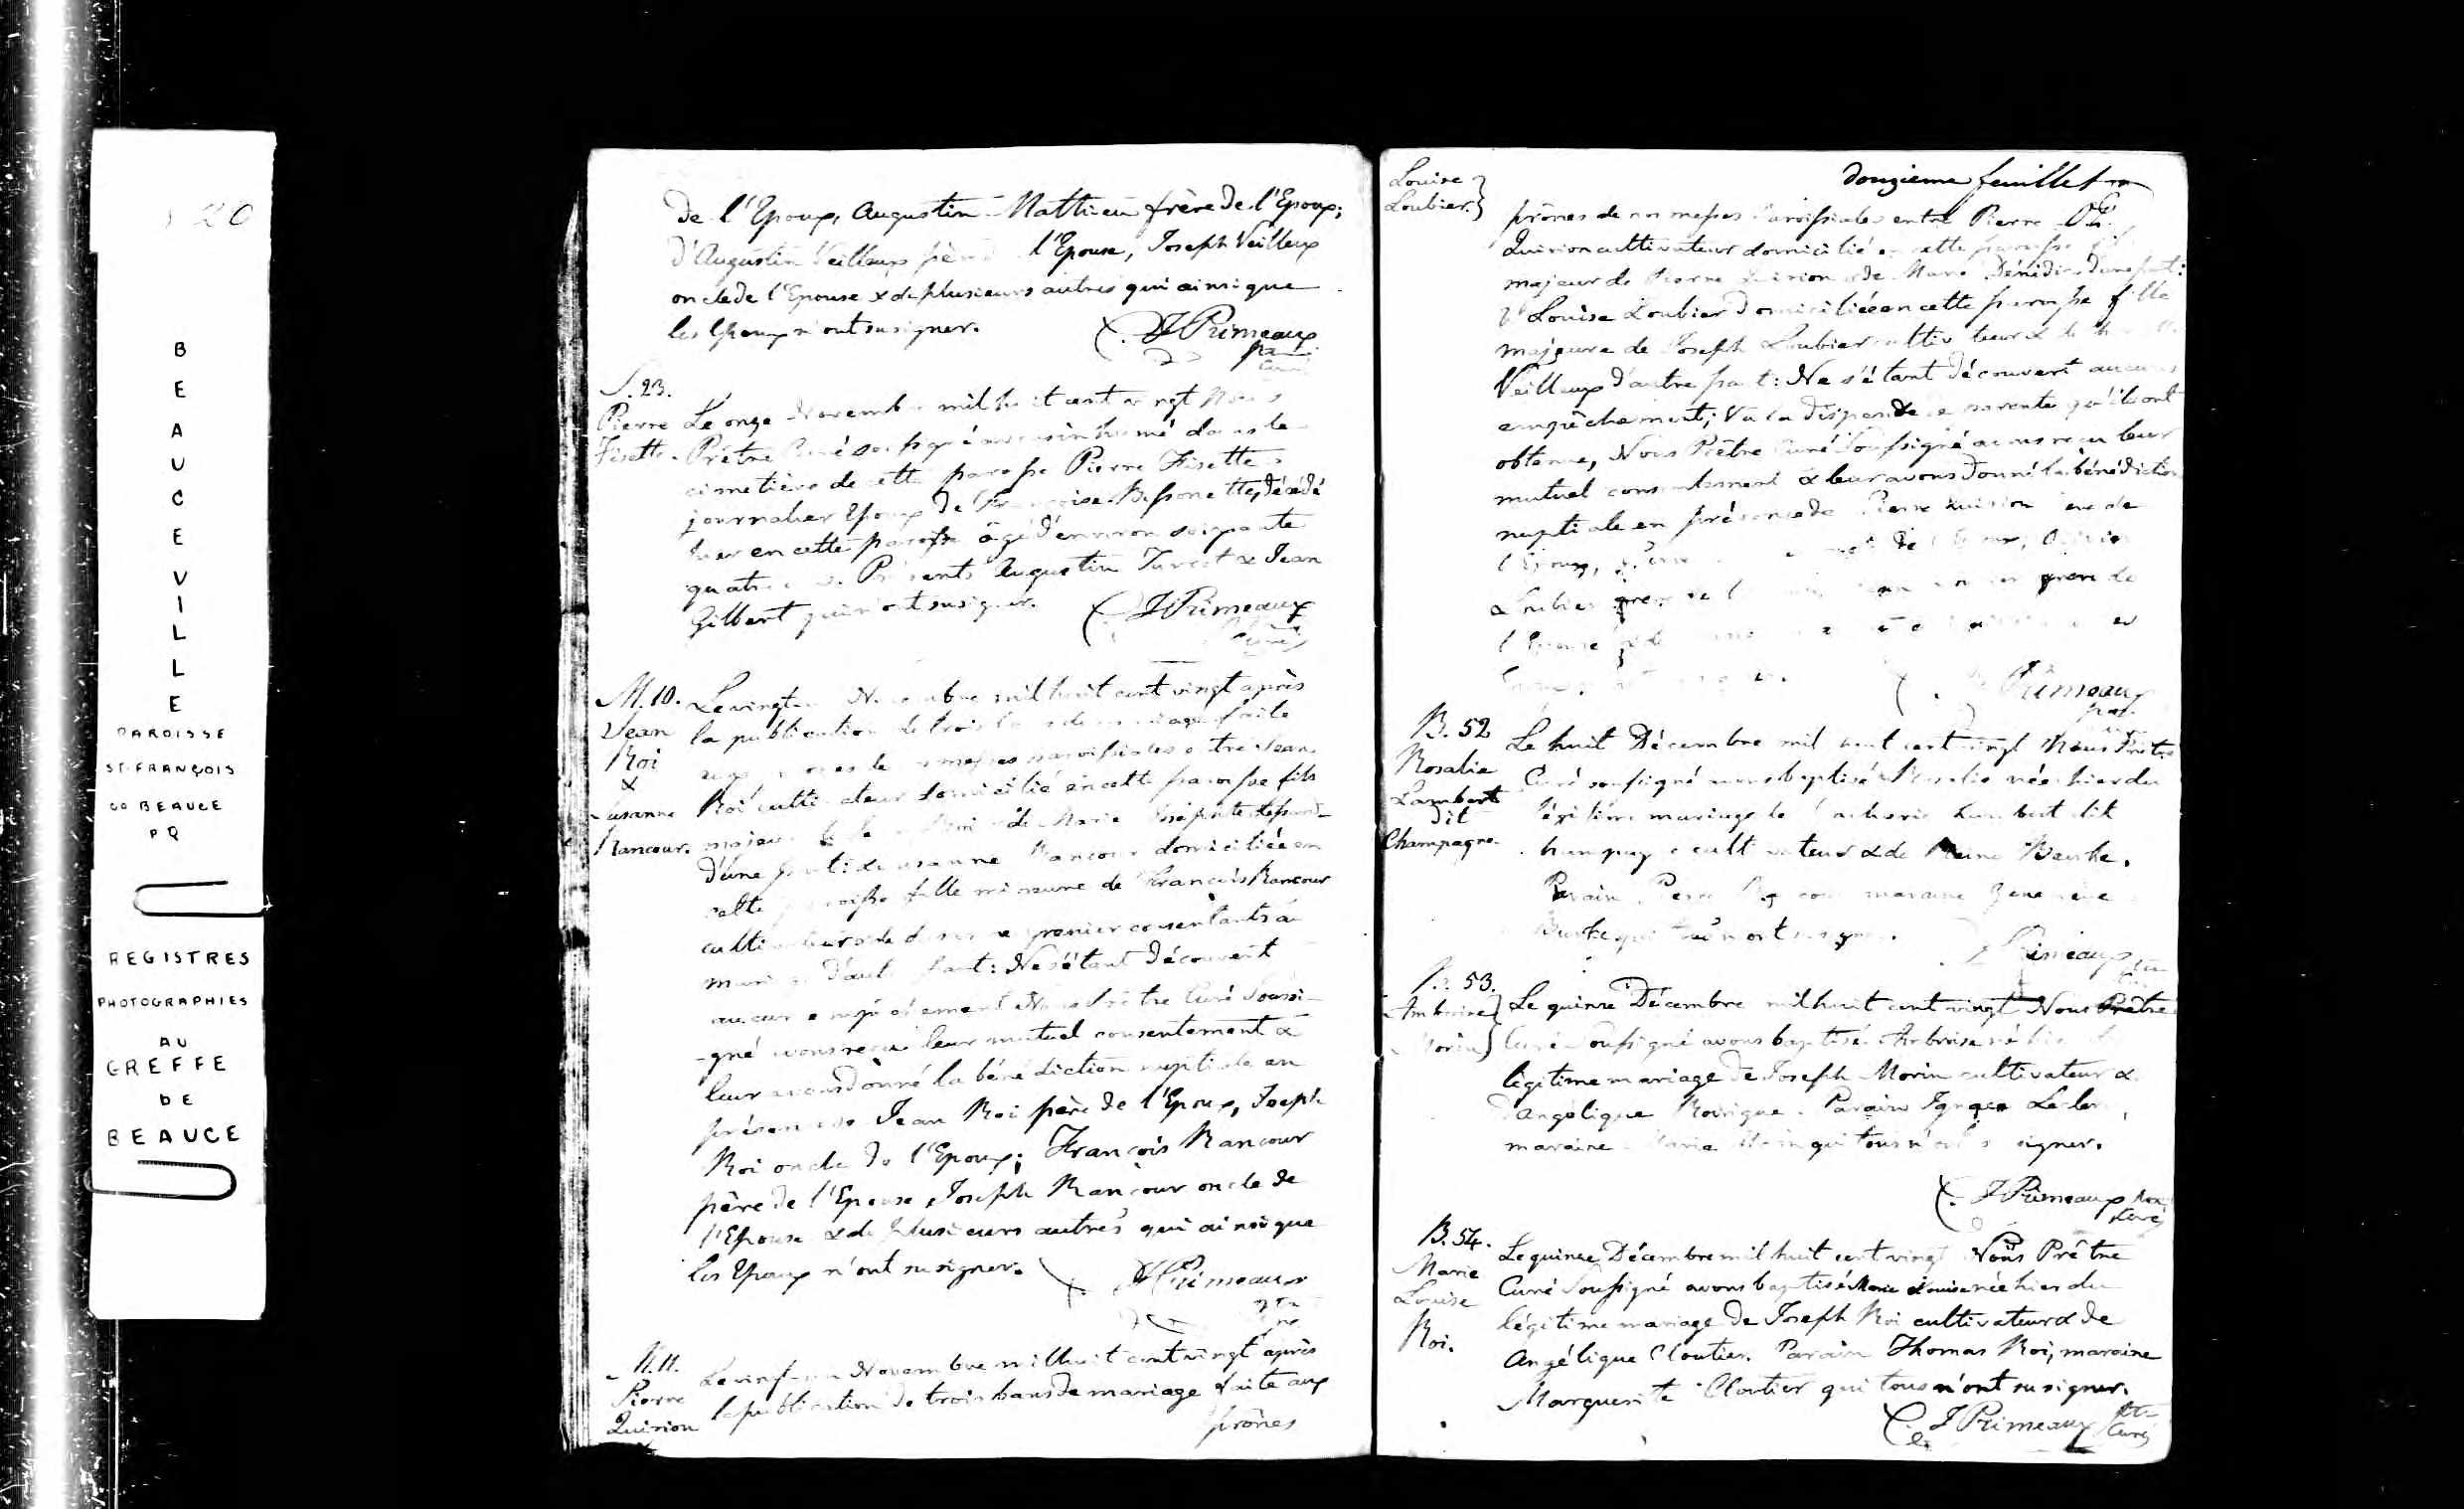 1820
BEAUCEVILLE
PAROISSE
ST-FRANÇOIS
CO BEAUCE
P Q
REGISTRES
PHOTOGRAPHIES
AU
GREFFE
DE
BEAUCE
de l'Epoux, Augustin Mathieu frère de l'Epoux;
d'Augustin Veilleux père l'Epouse, Joseph Veilleux
oncle de l'Epouse & de plusieurs autres qui ainsi que
les Epoux n'ont su signer.
J Primeaux
S. 23.
Pierre
Fisette.
Le onze Novembre mil huit cent vingt Nous
Prêtre Curé soussigné avons inhumé dans le
cimetière de cette paroisse Pierre Fisette
journalier Epoux de Françoise Bissonette, décédé
hier en cette paroisse âgé d'environ soixante
quatre Présents Augustin Turcot & Jean
Gilbert qui n'ont su signer.
J Primeaux
Curé
M. 10.
Jean
Roi
&
Susanne
Rancour.
Le vingt Novembre mil huit cent vingt après
la publication de trois bans de mariage faite
aux prônes de nos messes paroissiales entre Jean
Roi cultivateur domicilié en cette paroisse fils
majeur de Roi & de Marie Josephte
d'une part & Susanne Rancour domiciliée en
cette paroisse fille mineure de François Rancour
cultivateur & de
d'autre part: Ne s'étant découvert
aucun empêchement Nous Prêtre Curé Soussi-
-gné avons reçu leur mutuel consentement &
leur avons donné la bénédiction nuptiale en
présence de Jean Roi père de l'Epoux, Joseph
Roi oncle de l'Epoux; François Rancour
père de l'Epouse, Joseph Rancour oncle de
l'Epouse & de plusieurs autres qui ainsi que
les Epoux n'ont su signer.
J Primeaux
M. 11.
Pierre
Quirion
Le vingt Novembre mil huit cent vingt après
la publication de trois bans de mariage faite aux
prônes
Louise
Loubier.
douzieme feuillet
prônes de nos messes Paroissiales entre Pierre
Quirion cultivateur domicilié en cette paroisse fils
majeur de Pierre Quirion & de Marie d'une part:
& Louise Loubier domiciliée en cette paroisse fille
majeure de Joseph Loubier cultivateur & de
Veilleux d'autre part: Ne s'étant découvert aucun
empêchement; Vu la dispense de parenté qu'ils ont
obtenue, Nous Prêtre Curé Soussigné avons reçu leur
mutuel consentement & leur avons donné la bénédiction
nuptiale en présence de Pierre Quirion père de
l'Epoux,
Loubier père de frère de
l'Epouse
Primeaux
B. 52
Rosalie
Lambert
dit
Champagne.
Le huit Décembre mil huit cent vingt Nous Prêtre
Curé soussigné avons baptisé Rosalie née hier du
légitime mariage de Zacharie Lambert dit
Champagne cultivateur & de
Parain maraine Geneviève
qui tous n'ont su signer.
Primeaux
B. 53.
Ambroise
Morin
Le quinze Décembre mil huit cent vingt Nous Prêtre
Curé Soussigné avons baptisé Ambroise né hier du
légitime mariage de Joseph Morin cultivateur &
d'Angélique Rodrigue. Parain Ignace Leclerc,
maraine Marie qui tous n'ont su signer.
J Primeaux
Curé
B. 54.
Marie
Louise
Roi.
Le quinze Décembre mil huit cent vingt Nous Prêtre
Curé Soussigné avons baptisé Marie Louise née hier du
légitime mariage de Joseph Roi cultivateur & de
Angélique Cloutier. Parain Thomas Roi, maraine
Marguerite Cloutier qui tous n'ont su signer.
J Primeaux
Curé